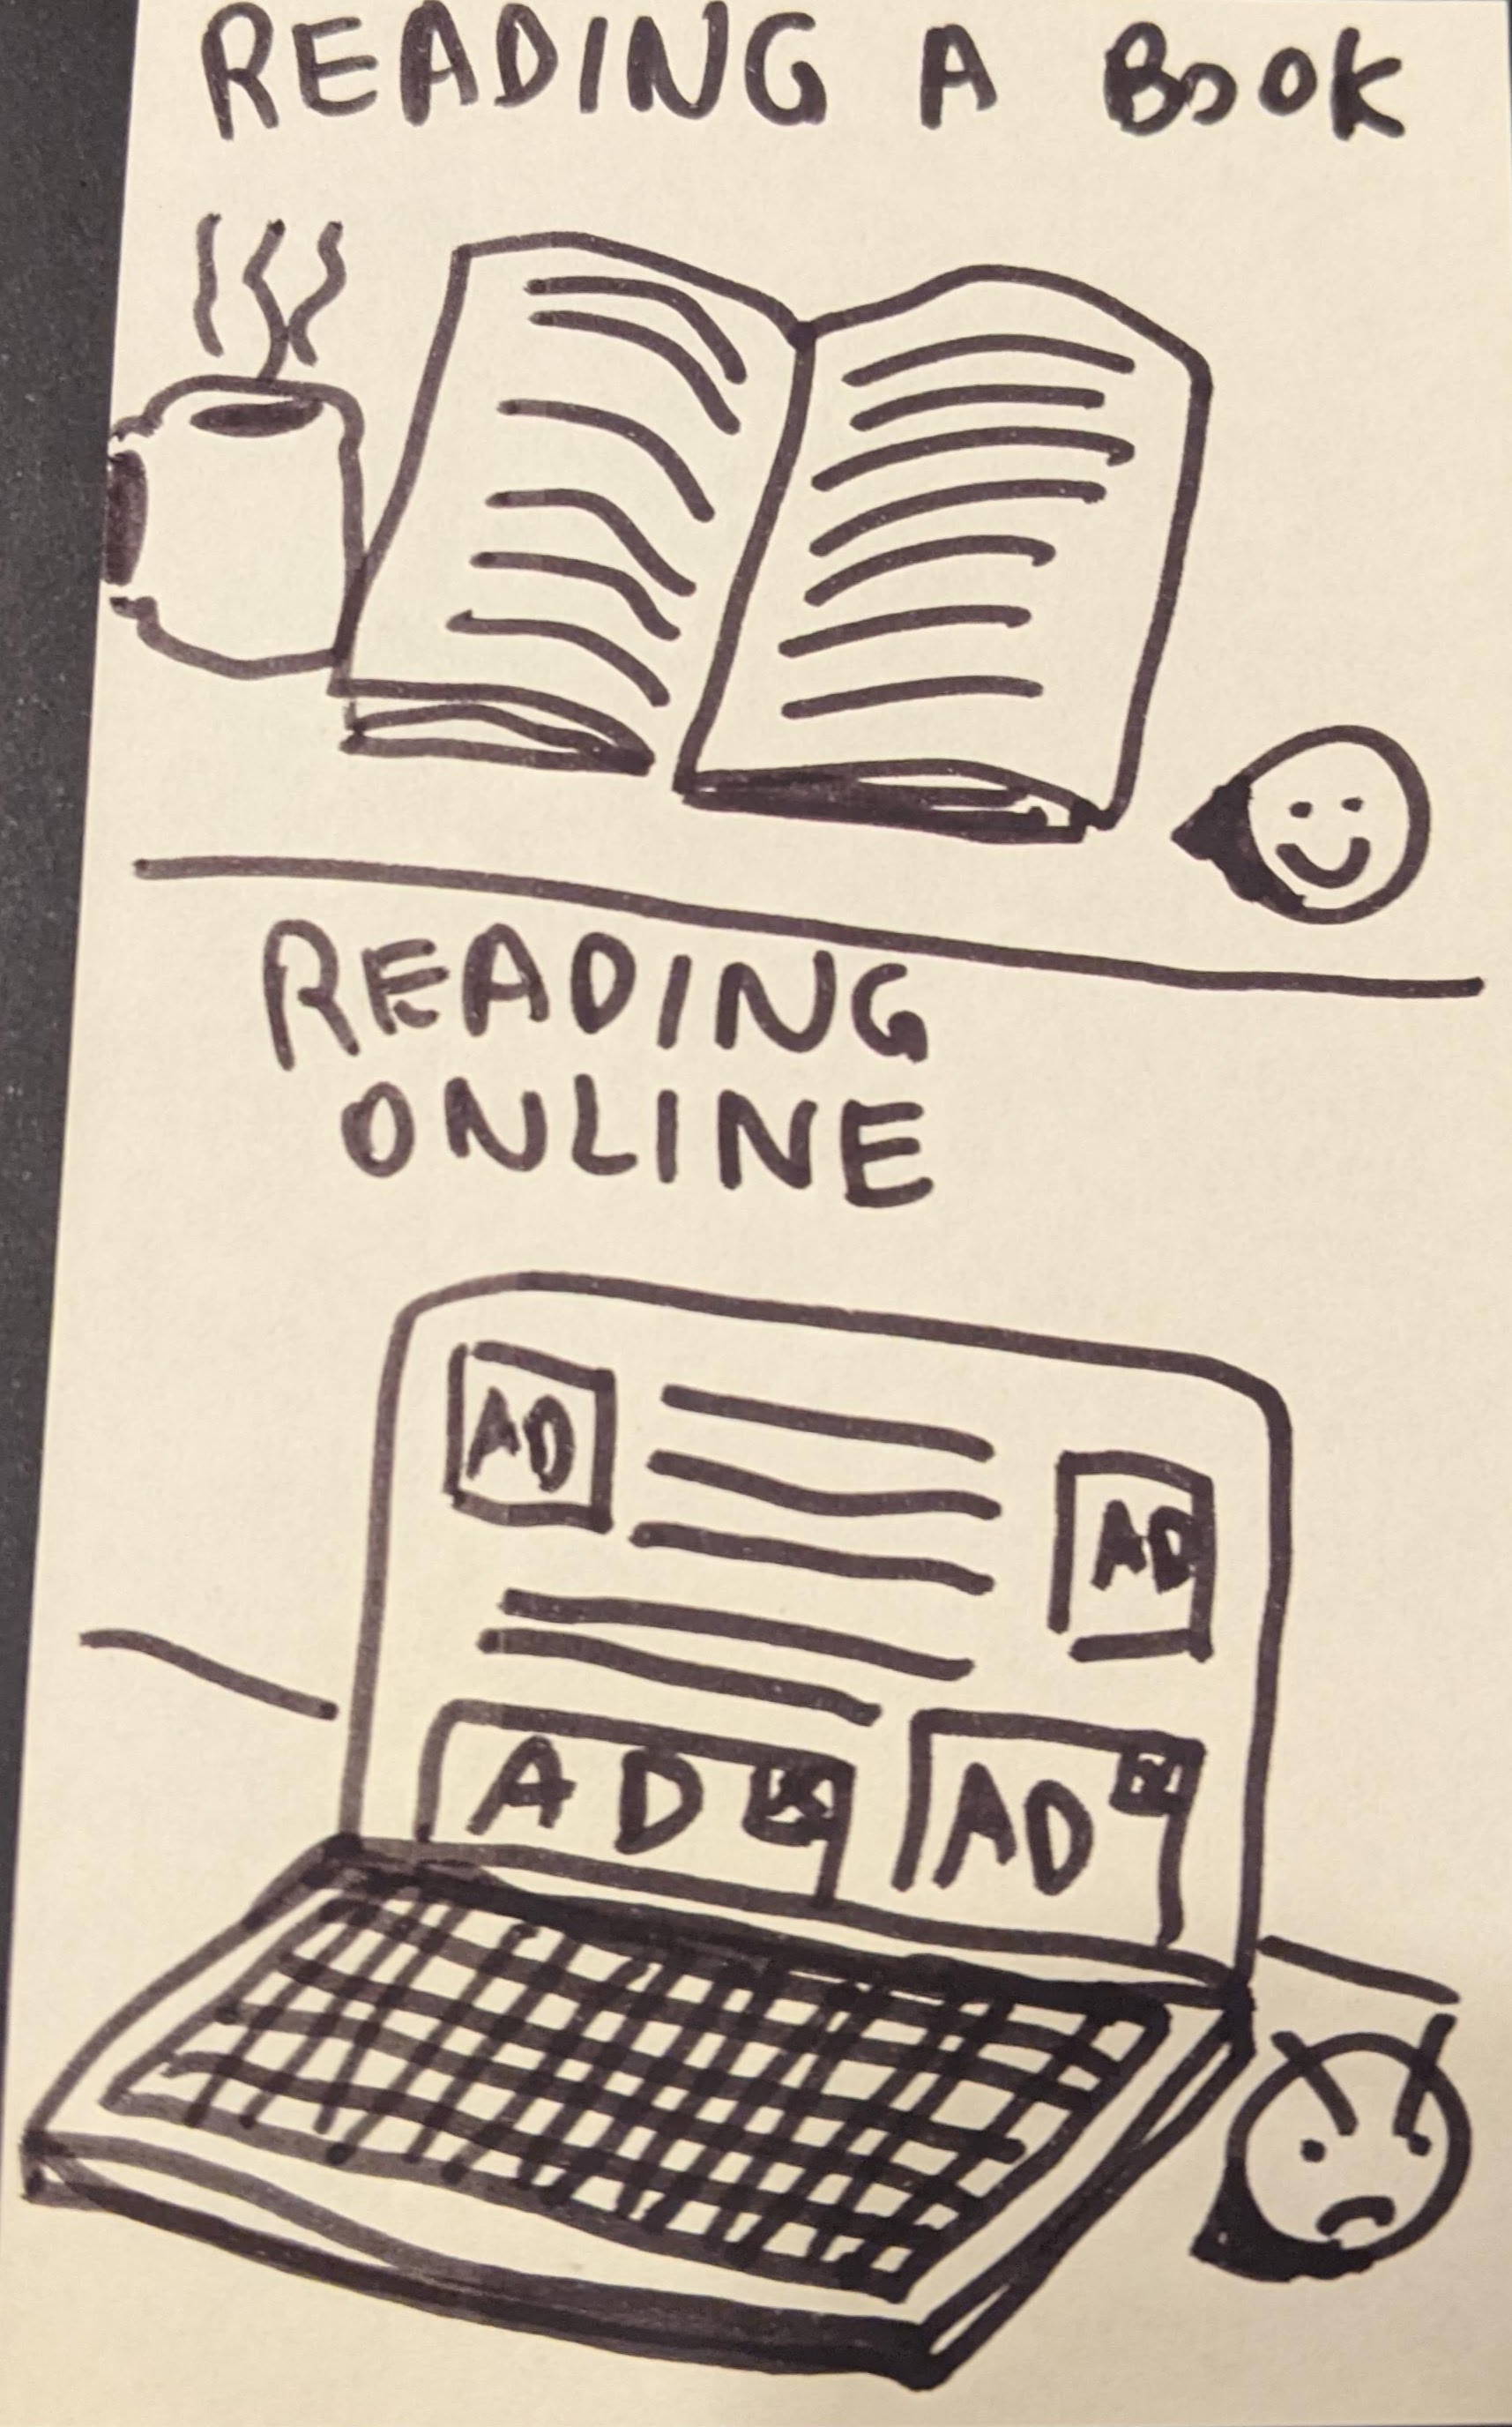 READING A BOOK
READING
ONLINE
AD
AD
AD
AD